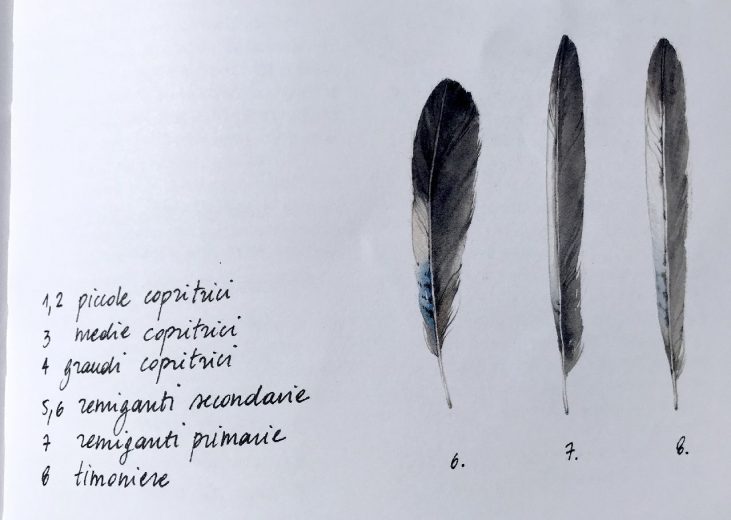 1,2 piccole copritrici
3 medie copritrici
4 grandi copritrici
5,6 remiganti secondarie
7 remiganti primarie
8 timoniere
6. 7. 8.